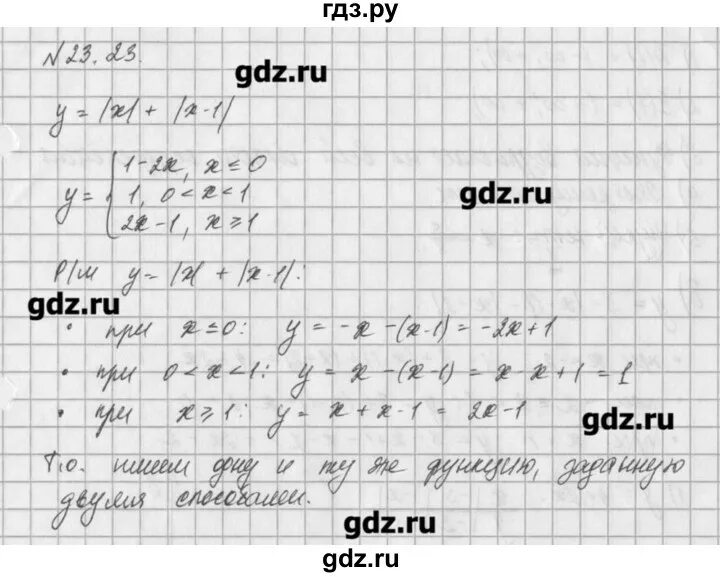 гдз.ру
N 23.23.
gdz.ru
y = |x| + |x-1|
y = { 1-2x, x ≤ 0
1, 0 < x < 1
2x-1, x ⩾ 1
gdz.ru
Р/м y = |x| + |x-1|:
gdz.ru
• при x ≤ 0: y = -x -(x-1) = -2x+1
• при 0 < x < 1: y = x -(x-1) = x-x+1 = 1
• при x ⩾ 1: y = x + x-1 = 2x-1
gdz.ru
Т.о. имеем одну и ту же функцию, заданную
двумя способами.
gdz.ru
gdz.ru